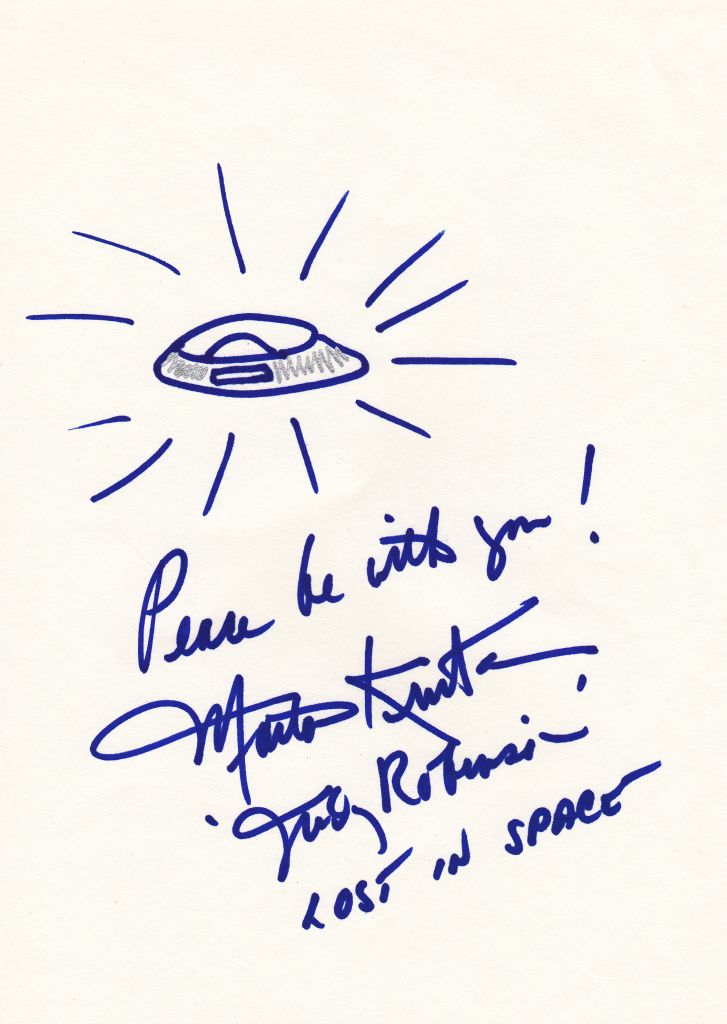 Peace be with you!
Marta Kristen
'Judy Robinson'
LOST IN SPACE